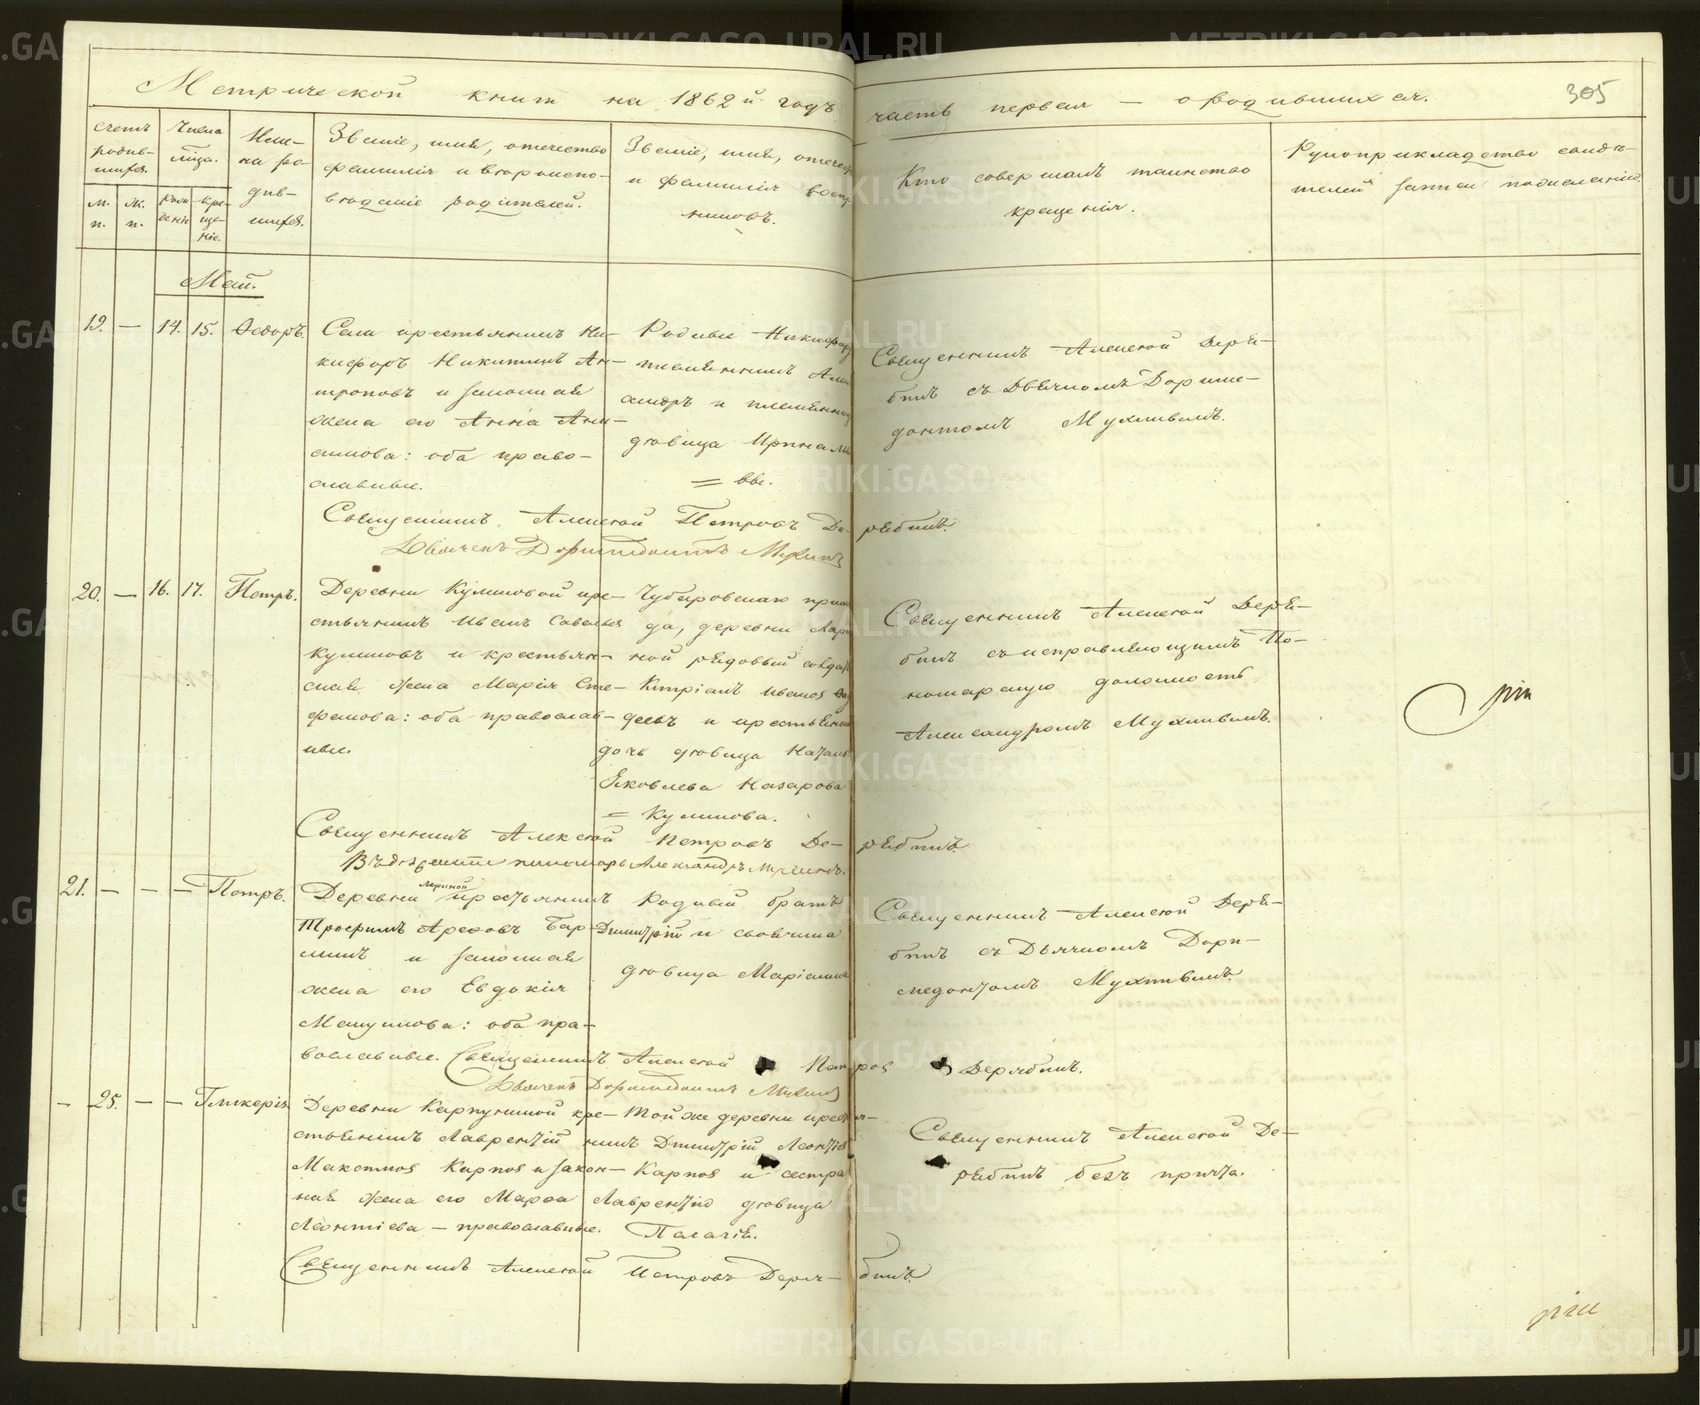 Метрической книги на 1862й годъ часть первая — о родившихся.
305
Счетъ родив-шихся.
Числа мѣца.
Име-на ро-див-шихся.
Званіе, имя, отечество
фамилія и вѣроиспо-
вѣданіе родителей.
Званіе, имя, отечест
и фамилія восп
никовъ.
Кто совершалъ таинство
крещенія.
Рукоприкладство свидѣ-
телей записи по желанію.
м. п.
ж. п.
рожденія
кре-ще-ніе.
Май.
19. — 14. 15. Ѳедоръ.
Села крестьянинъ Ни-
кифоръ Никитинъ Ан-
троповъ и законная
жена его Анна Ани-
симова: оба право-
славные.
Родные Никифор
племянникъ Алек
сандръ и племянница
дѣвица Ирина
= вы.
Священникъ Алексей Деря-
бинъ съ Дьячкомъ Дориме-
донтомъ Мухинымъ.
Священникъ Алексей Петровъ Де-рябинъ.
Дьячекъ Доримедонтъ Мухинъ
20. — 16. 17. Петръ.
Деревни Куликовой кре-
стьянинъ Иванъ Савельев
Куликовъ и крестьян-
ская жена Марія Сте-
фанова: оба православ-
ные.
Чубаровскаго прихо
да, деревни Лари
ной рядовый солдат
Кипріанъ Иванов
деевъ и крестьянская
дочь дѣвица Наталья
Яковлева Назарова
= Куликова.
Священникъ Алексей Деря-
бинъ съ исправляющимъ По-
номарскую должность
Александромъ Мухинымъ.
Священникъ Алексей Петровъ Де-рябинъ
пономарь Александръ Мухинъ.
21. — — — Петръ.
Лариной
Деревни крестьянинъ
Трофимъ Арефовъ Бар-
минъ и законная
жена его Евдокія
Мешукова: оба пра-
вославные.
Родный братъ
Димитрій и своячина
дѣвица Маріанна
Священникъ Алексей Деря-
бинъ съ Дьячкомъ Дори-
медонтомъ Мухинымъ.
Священникъ Алексей Петров Дерябинъ.
Дьячекъ Доримедонтъ Мухинъ
— 25. — — Гликерія
Деревни Карпушиной кре-
стьянинъ Лаврентій
Максимов Карпов и закон-
ная жена его Марѳа
Леонтіева — православные.
Той же деревни кресть-
нинъ Димитрій Леонтіев
Карпов и сестра
Лаврентія дѣвица
Пелагія.
Священникъ Алексей Де-
рябинъ безъ причта.
Священникъ Алексей Петровъ Деря-бинъ
METRIKI.GASO-URAL.RU